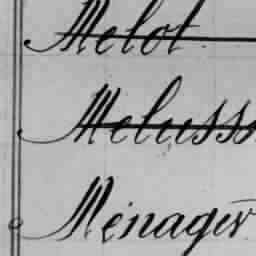 Melot
Meluss
Ménager